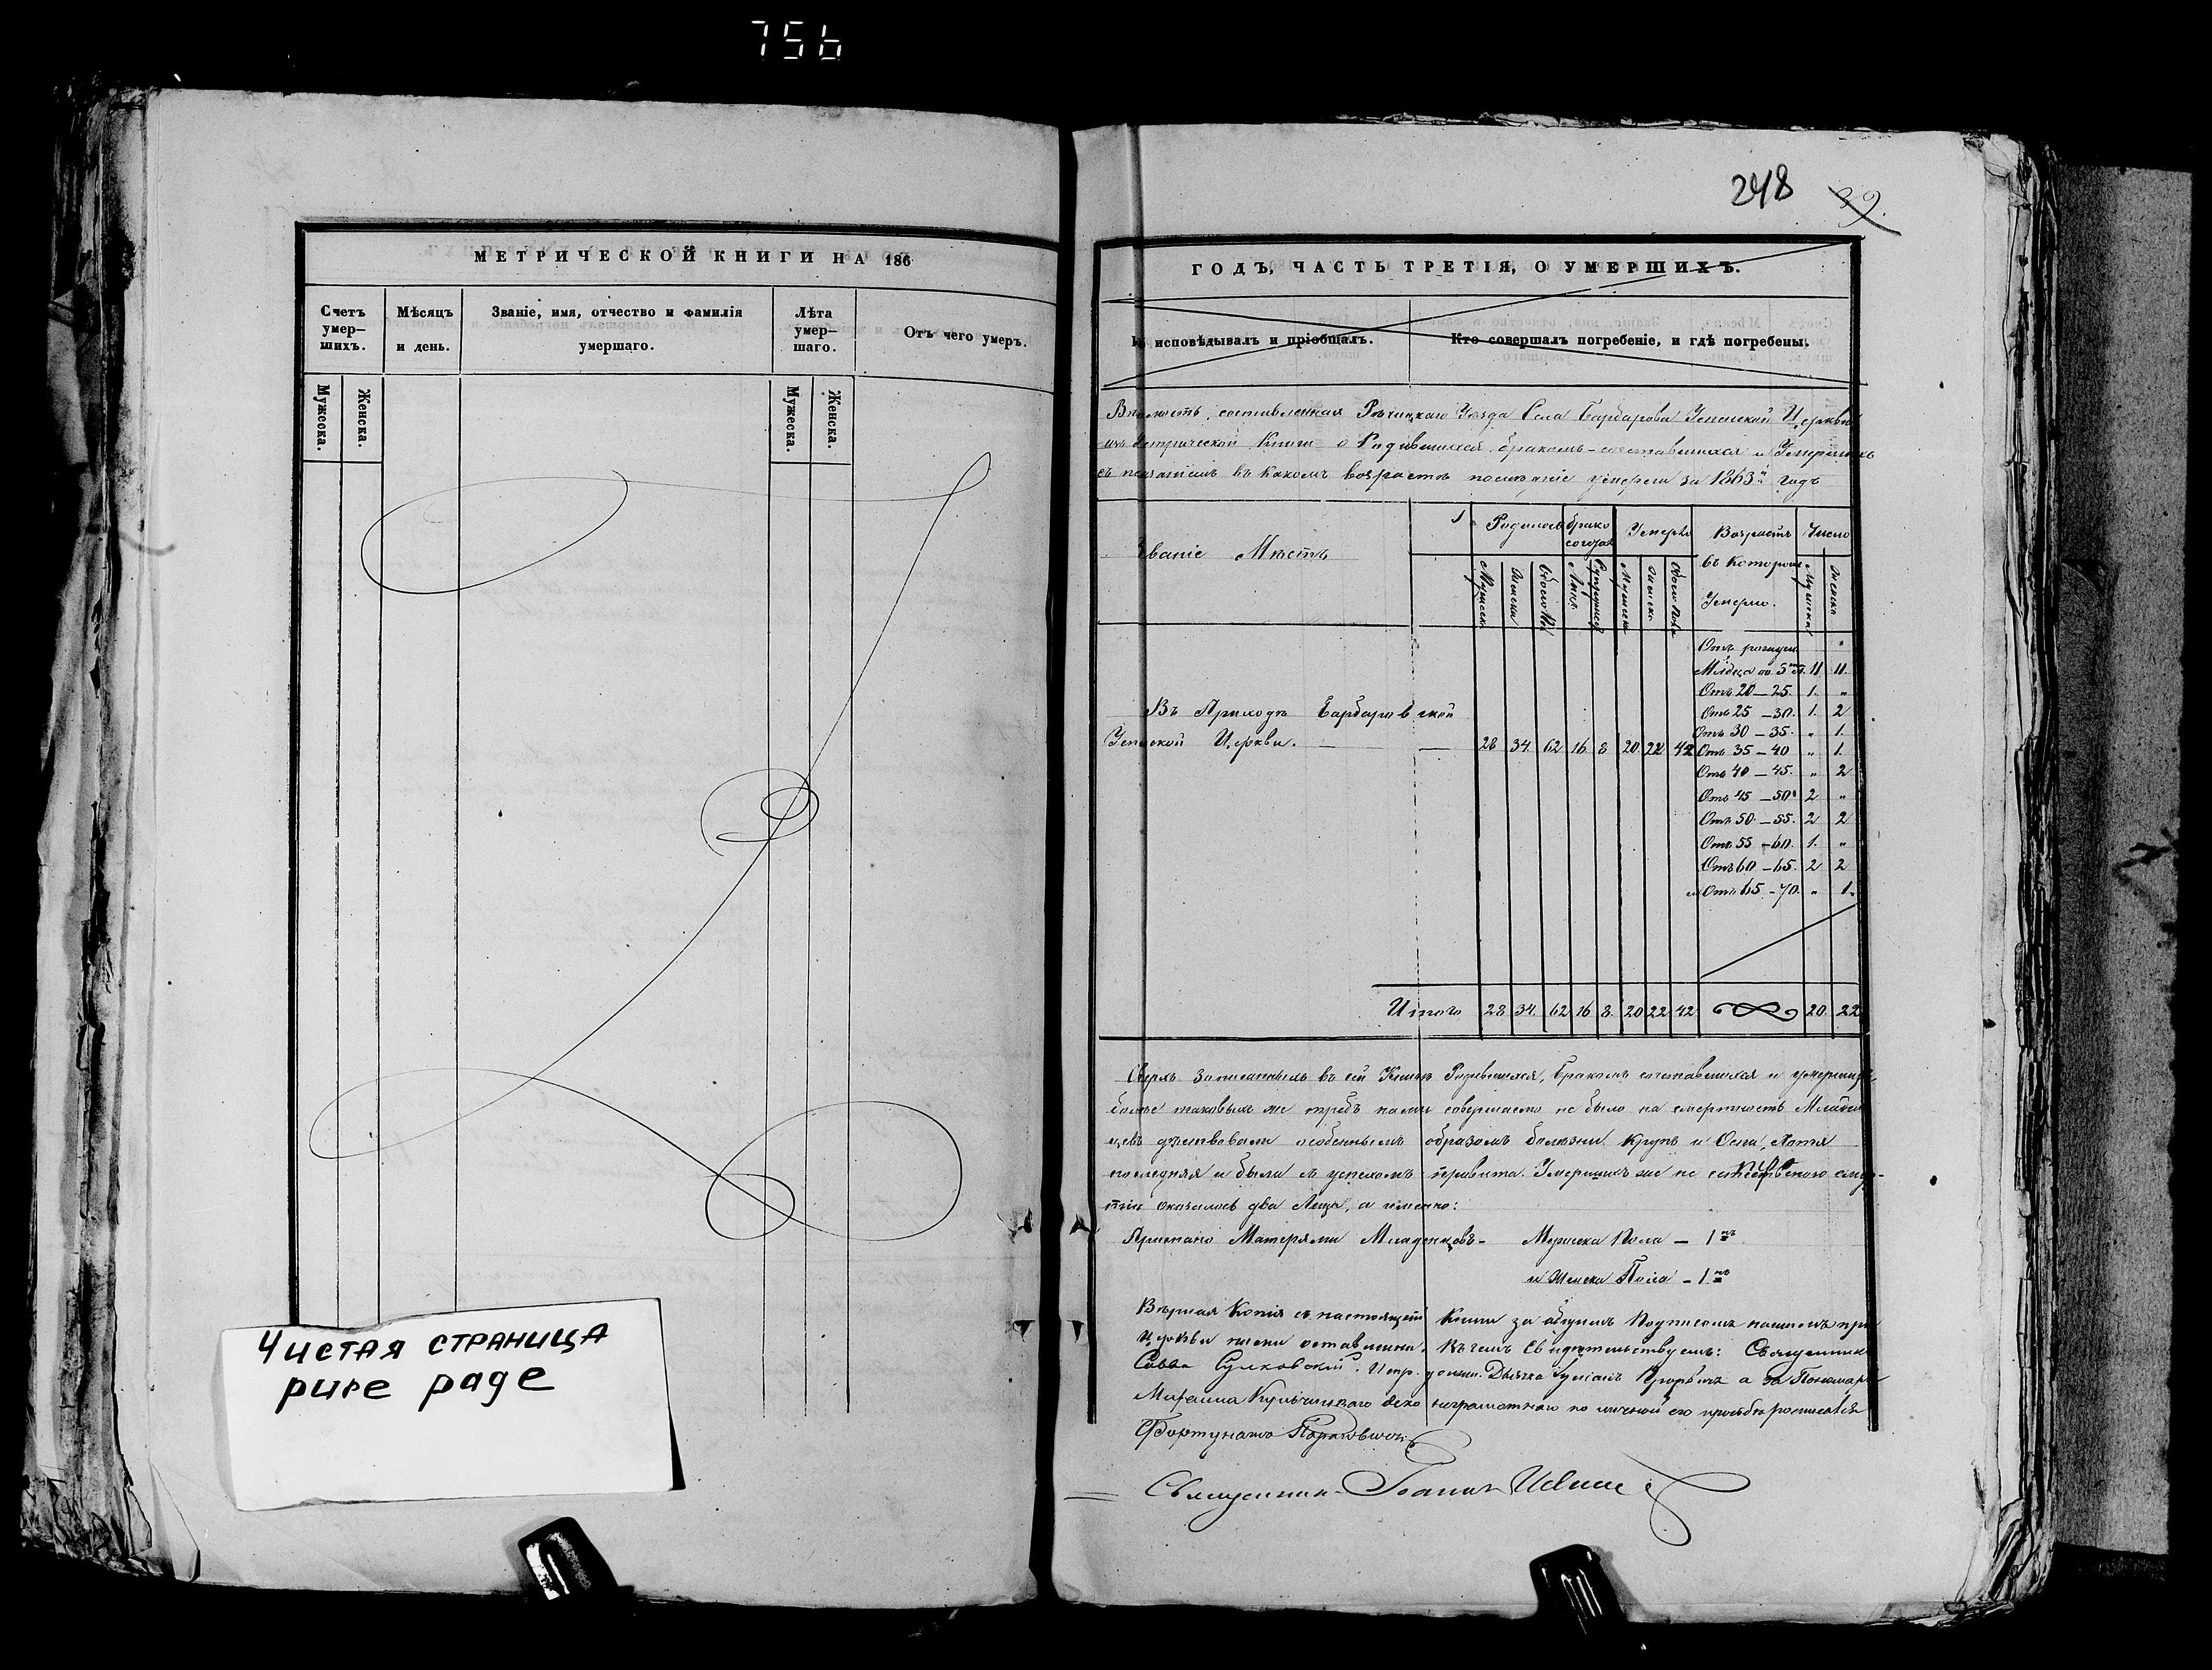 756
МЕТРИЧЕСКОЙ КНИГИ НА 186
Счетъ умер— шихъ.
Мѣсяцъ и день.
Званіе, имя, отчество и фамилія умершаго.
Лѣта умер— шаго.
Отъ чего умеръ.
Мужеска.
Женска.
Мужеска.
Женска.
Чистая страница
pure page
248
39.
ГОДЪ, ЧАСТЬ ТРЕТІЯ, О УМЕРШИХЪ.
исповѣдывалъ и пріобщалъ.
Кто совершалъ погребеніе, и гдѣ погребены.
Вѣдомость, составленная Рѣчицкаго Уѣзда Села Барбарова Успенской Церкви
изъ Метрической Книги о Родившихся, бракомъ-сочетавшихся и Умершихъ
съ показаніемъ въ какомъ возрастѣ послѣдніе умерли за 1863й годъ
Званіе Мѣстъ
Родилось
Брако
Умерло
Возрастъ
Число
въ которомъ
Умерло.
Мужеска
Женска
Обоего
Мужеска
Женска
Обоего Пола
Мужеска
Женска
Отъ рожден. "
Младъ до 5 11 11.
Отъ 20 — 25. 1. "
Отъ 25 — 30. 1. 2
Отъ 30 — 35. " 1.
Отъ 35 — 40 " 1.
Отъ 40 — 45. " 2
Отъ 45 — 50 2 "
Отъ 50 — 55. 2 2
Отъ 55 — 60. 1. "
Отъ 60 — 65. 2 2
и Отъ 65 — 70. " 1.
Въ Приходѣ Барбаровской
Успенской Церкви. — — 28 34. 62 16 8 20. 22 42
Итого 28 34. 62 16 8. 20 22 42 20. 22
Сверхъ записанныхъ въ сей Книгѣ Родившихся, Бракомъ сочетавшихся и умершихъ
болѣе таковыхъ же требъ нами совершаемо не было на смертность Младен
цевъ дѣйствовали особеннымъ образомъ болѣзни Крупъ и Оспа, хотя
послѣдняя и была съ успехомъ привита. Умершихъ же не смер-
тію оказалось два Лица, а именно:
Матерями Младенцовъ — Мужеска Пола — 1
и Женска Пола — 1
Вѣрная Копія съ настоящей Книги за общимъ Подписомъ нашимъ при
Церкви нами оставлена. Въ чемъ Свидѣтельствуемъ: Священникъ
Савва Сулковскій. Дьячка а за Пономаря
неграмотнаго по личной его прозьбѣ росписался
Фортунатъ
Священникъ Іоаннъ